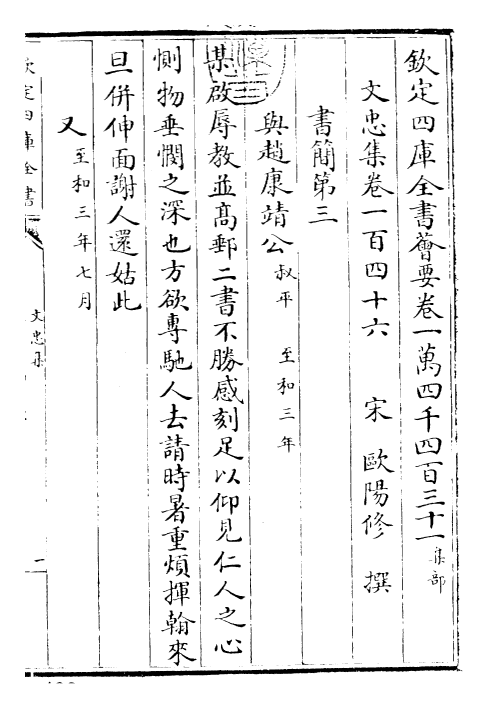 欽定四庫全書薈要卷一萬四千四百三十一集部
文忠集卷一百四十六　宋　歐陽修　撰
書簡第三
與趙康靖公叔平　至和三年
某啟辱教並髙郵二書不勝感刻足以仰見仁人之心
惻物垂憫之深也方欲專馳人去請時暑重煩揮翰來
旦併伸面謝人還姑此
又至和三年七月
欽定四庫全書
文忠集
一